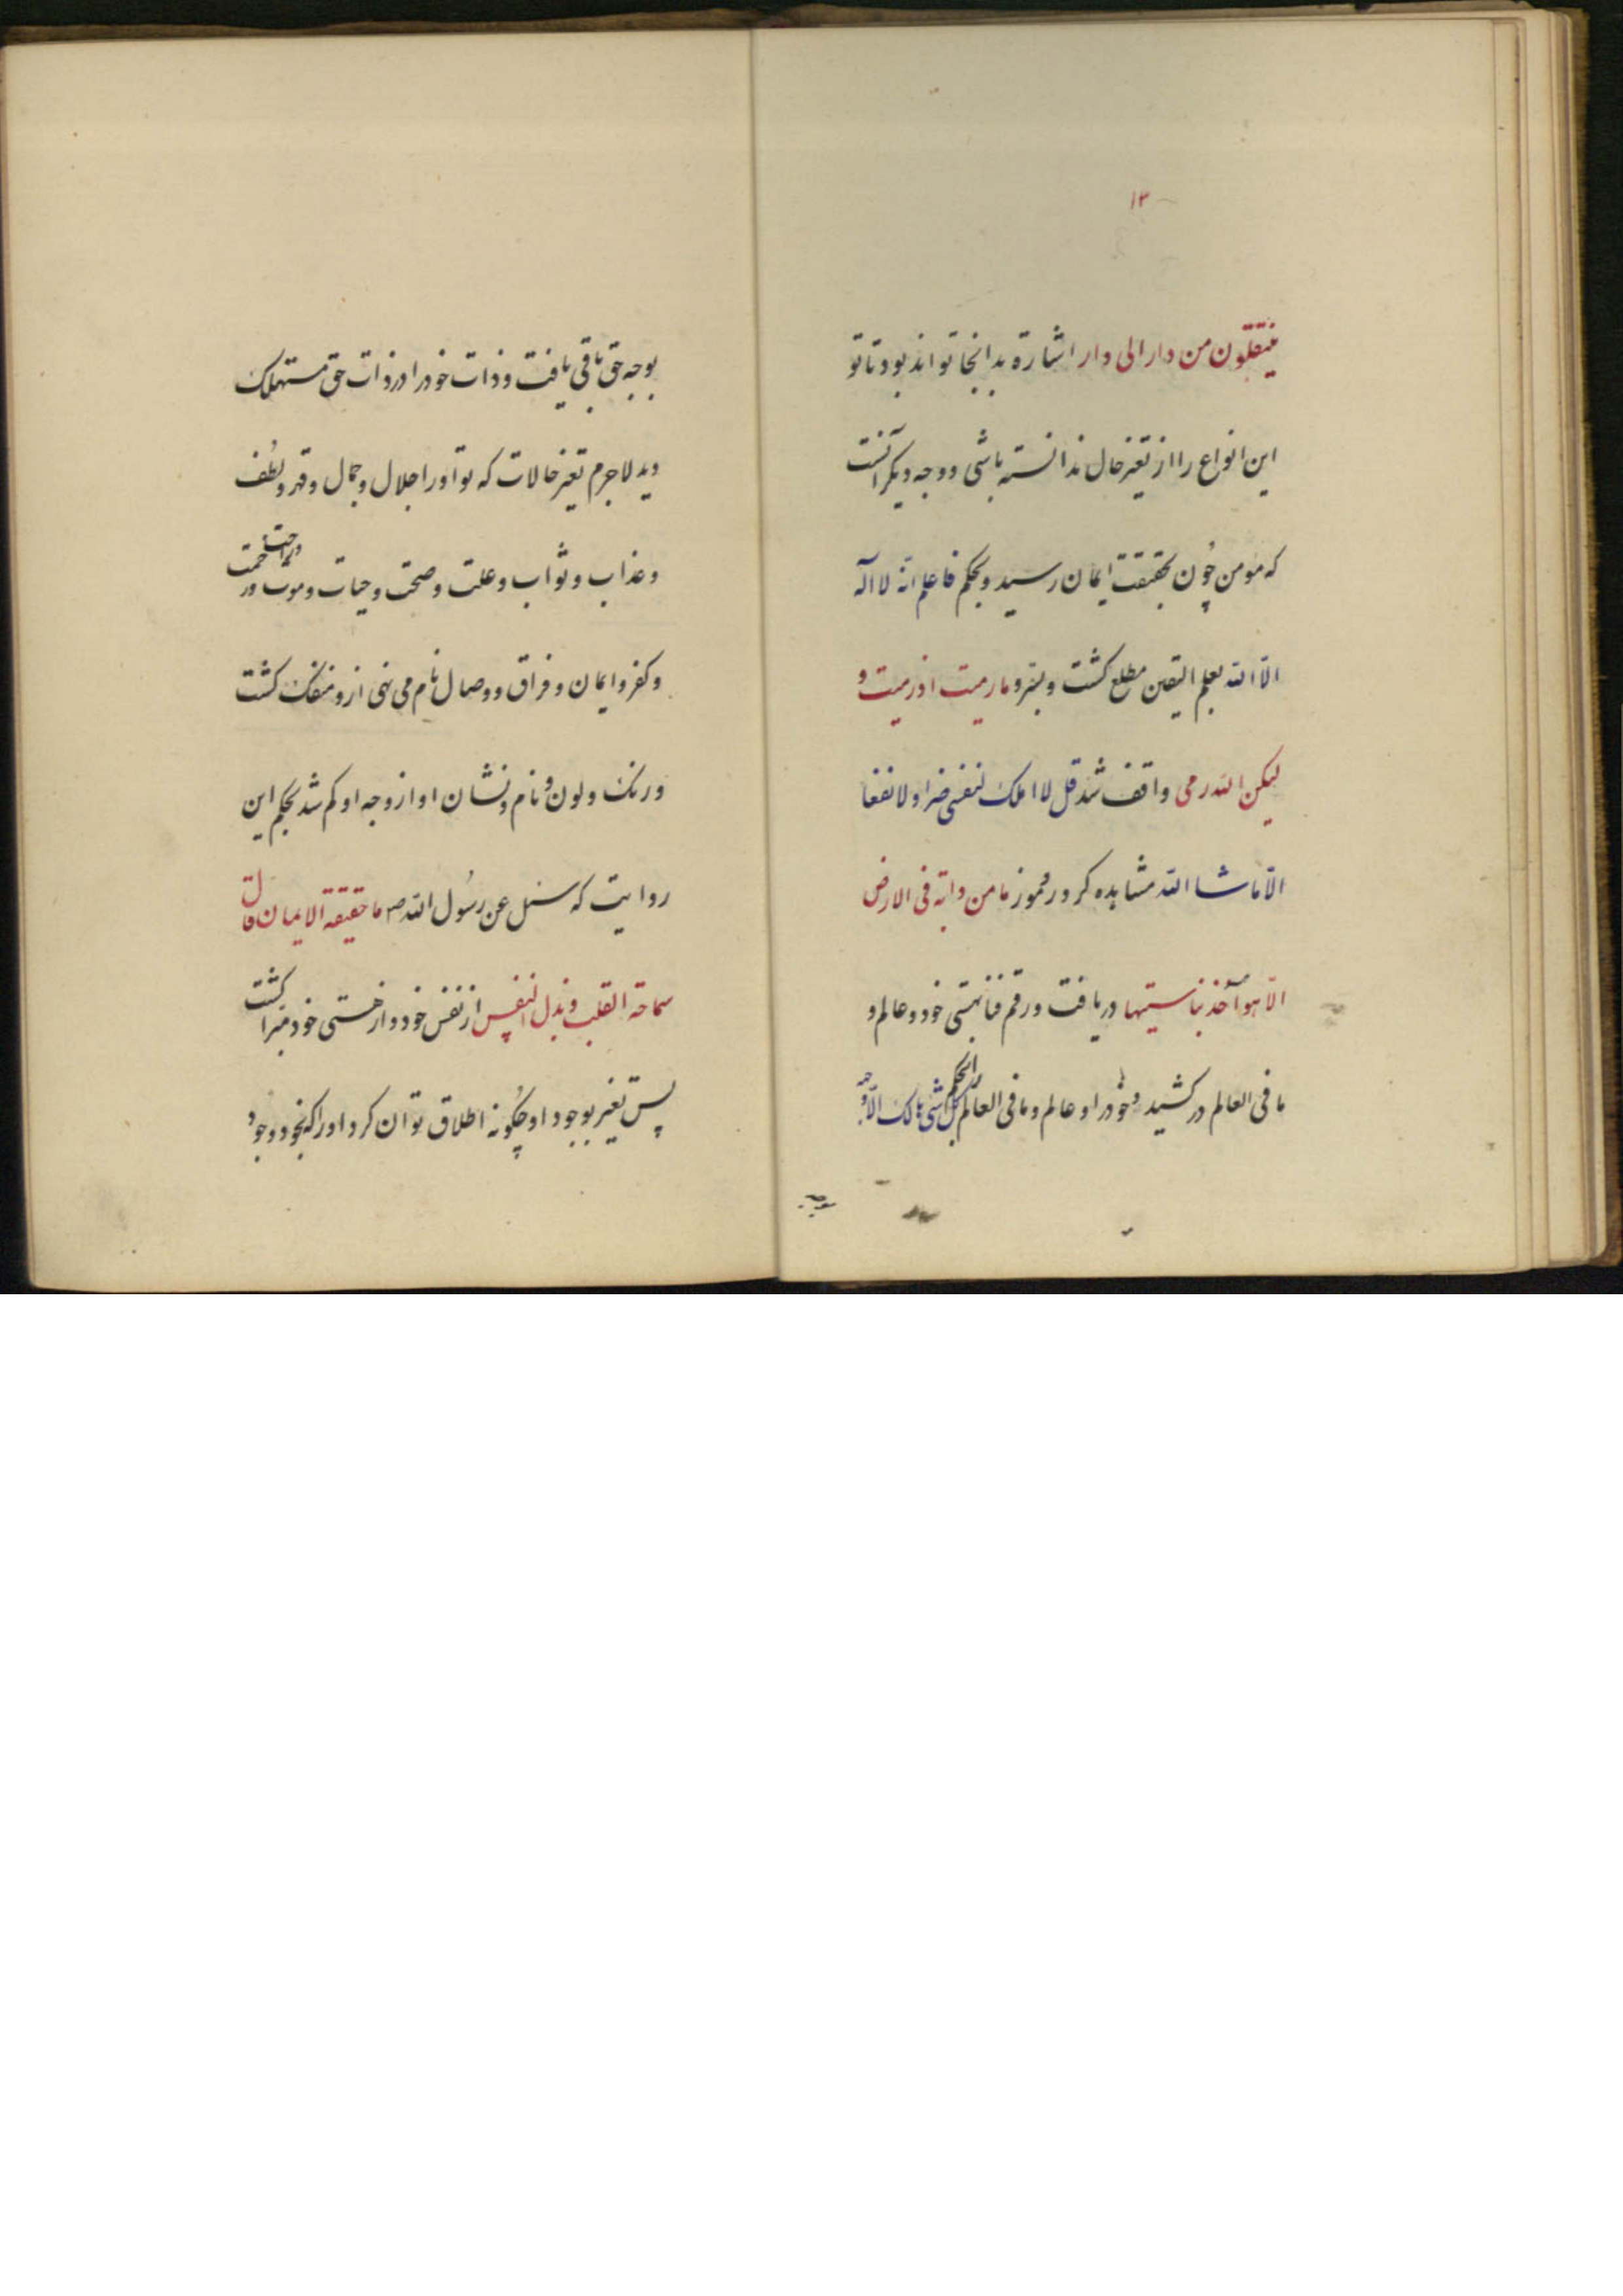 ۱۳
ینتقلون من دار الی دار اشارة بدانجا تواند بود تا تو
این انواع را از تغیر حال ندانسته باشی و وجه دیکر آنست
که مومن چون بحقیقت ایمان رسید و بحکم فاعلم انه لا اله
الا الله بعلم الیقین مطلع کشت و بسّر و ما رمیت اذ رمیت و
لیکن الله رمی واقف شد قل لا املک لنفسی ضرا و لا نفعا
الا ما شا الله مشاهده کرد و رموز ما من دابة فی الارض
الا هو آخذ بناصیتها دریافت و رقم فنا بهستی خود و عالم و
ما فی العالم در کشید و خود را و عالم و ما فی العالم را بحکم کل شی هالک الا وجهه
بوجه
بوجه حق باقی یافت و ذات خود را در ذات حق مستهلک
دید لاجرم تغیر حالات که تو آورا جلال و جمال و قهر و لطف
و عذاب و ثواب و علت و صحت و حیات و موت و راحت و رحمت
و کفر و ایمان و فراق و وصال نام می نهی ازو منفک کشت
و رنک و لون و نام و نشان او از وجه او کم شد بحکم این
روایت که سئل عن رسول الله ص ما حقیقة الایمان قال
سماحة القلب و بذل النفس از نفس خود و از هستی خود مبرا کشت
پس تغیر بوجود او چکونه اطلاق توان کرد اورا که بخود وجود